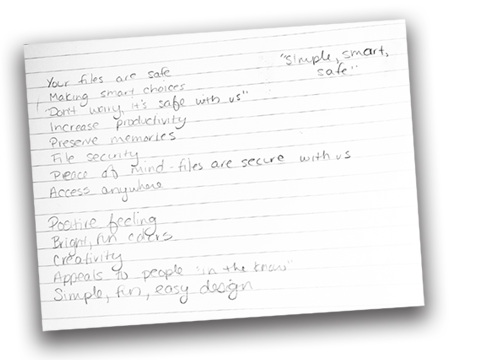 "Simple, smart,
safe"
Your files are safe
Making smart choices
"Don't worry, it's safe with us"
Increase productivity
Preserve memories
File security
Peace of mind - files are secure with us
Access anywhere
Positive feeling
Bright, fun colors
Creativity
Appeals to people "in the know"
Simple, fun, easy design